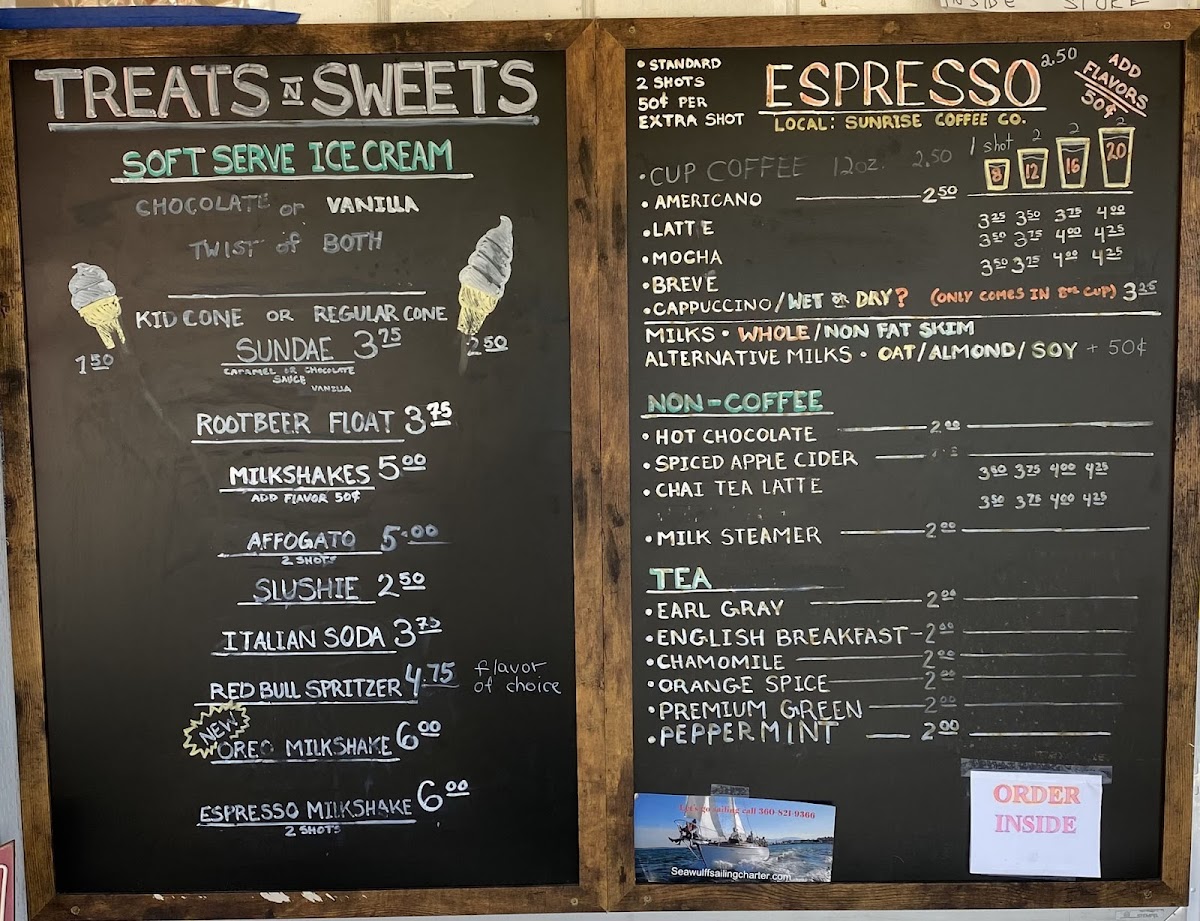 INSIDE STORE
TREATS N SWEETS
SOFT SERVE ICE CREAM
CHOCOLATE or VANILLA
TWIST of BOTH
KID CONE OR REGULAR CONE
1.50
2.50
SUNDAE 3.75
CARAMEL OR CHOCOLATE
SAUCE
VANILLA
ROOTBEER FLOAT 3.75
MILKSHAKES 5.00
ADD FLAVOR 50¢
AFFOGATO 5.00
2 SHOTS
SLUSHIE 2.50
ITALIAN SODA 3.75
RED BULL SPRITZER 4.75 flavor
of choice
NEW
OREO MILKSHAKE 6.00
ESPRESSO MILKSHAKE 6.00
2 SHOTS
• STANDARD
2 SHOTS
50¢ PER
EXTRA SHOT
ESPRESSO 2.50
ADD
FLAVORS
50¢
LOCAL: SUNRISE COFFEE CO.
1 shot 2 2 2
8 12 16 20
• CUP COFFEE 12oz. 2.50
• AMERICANO 2.50
• LATTE 3.25 3.50 3.75 4.00
• MOCHA 3.50 3.75 4.00 4.25
• BREVE 3.50 3.75 4.00 4.25
• CAPPUCCINO/WET OR DRY? (ONLY COMES IN 8oz CUP) 3.25
MILKS • WHOLE/NON FAT SKIM
ALTERNATIVE MILKS • OAT/ALMOND/SOY + 50¢
NON-COFFEE
• HOT CHOCOLATE 2.00
• SPICED APPLE CIDER
3.50 3.75 4.00 4.25
• CHAI TEA LATTE
3.50 3.75 4.00 4.25
• MILK STEAMER 2.00
TEA
• EARL GRAY 2.00
• ENGLISH BREAKFAST 2.00
• CHAMOMILE 2.00
• ORANGE SPICE 2.00
• PREMIUM GREEN 2.00
• PEPPERMINT 2.00
Let's go sailing call 360-821-9366
Seawulffsailingcharter.com
ORDER
INSIDE